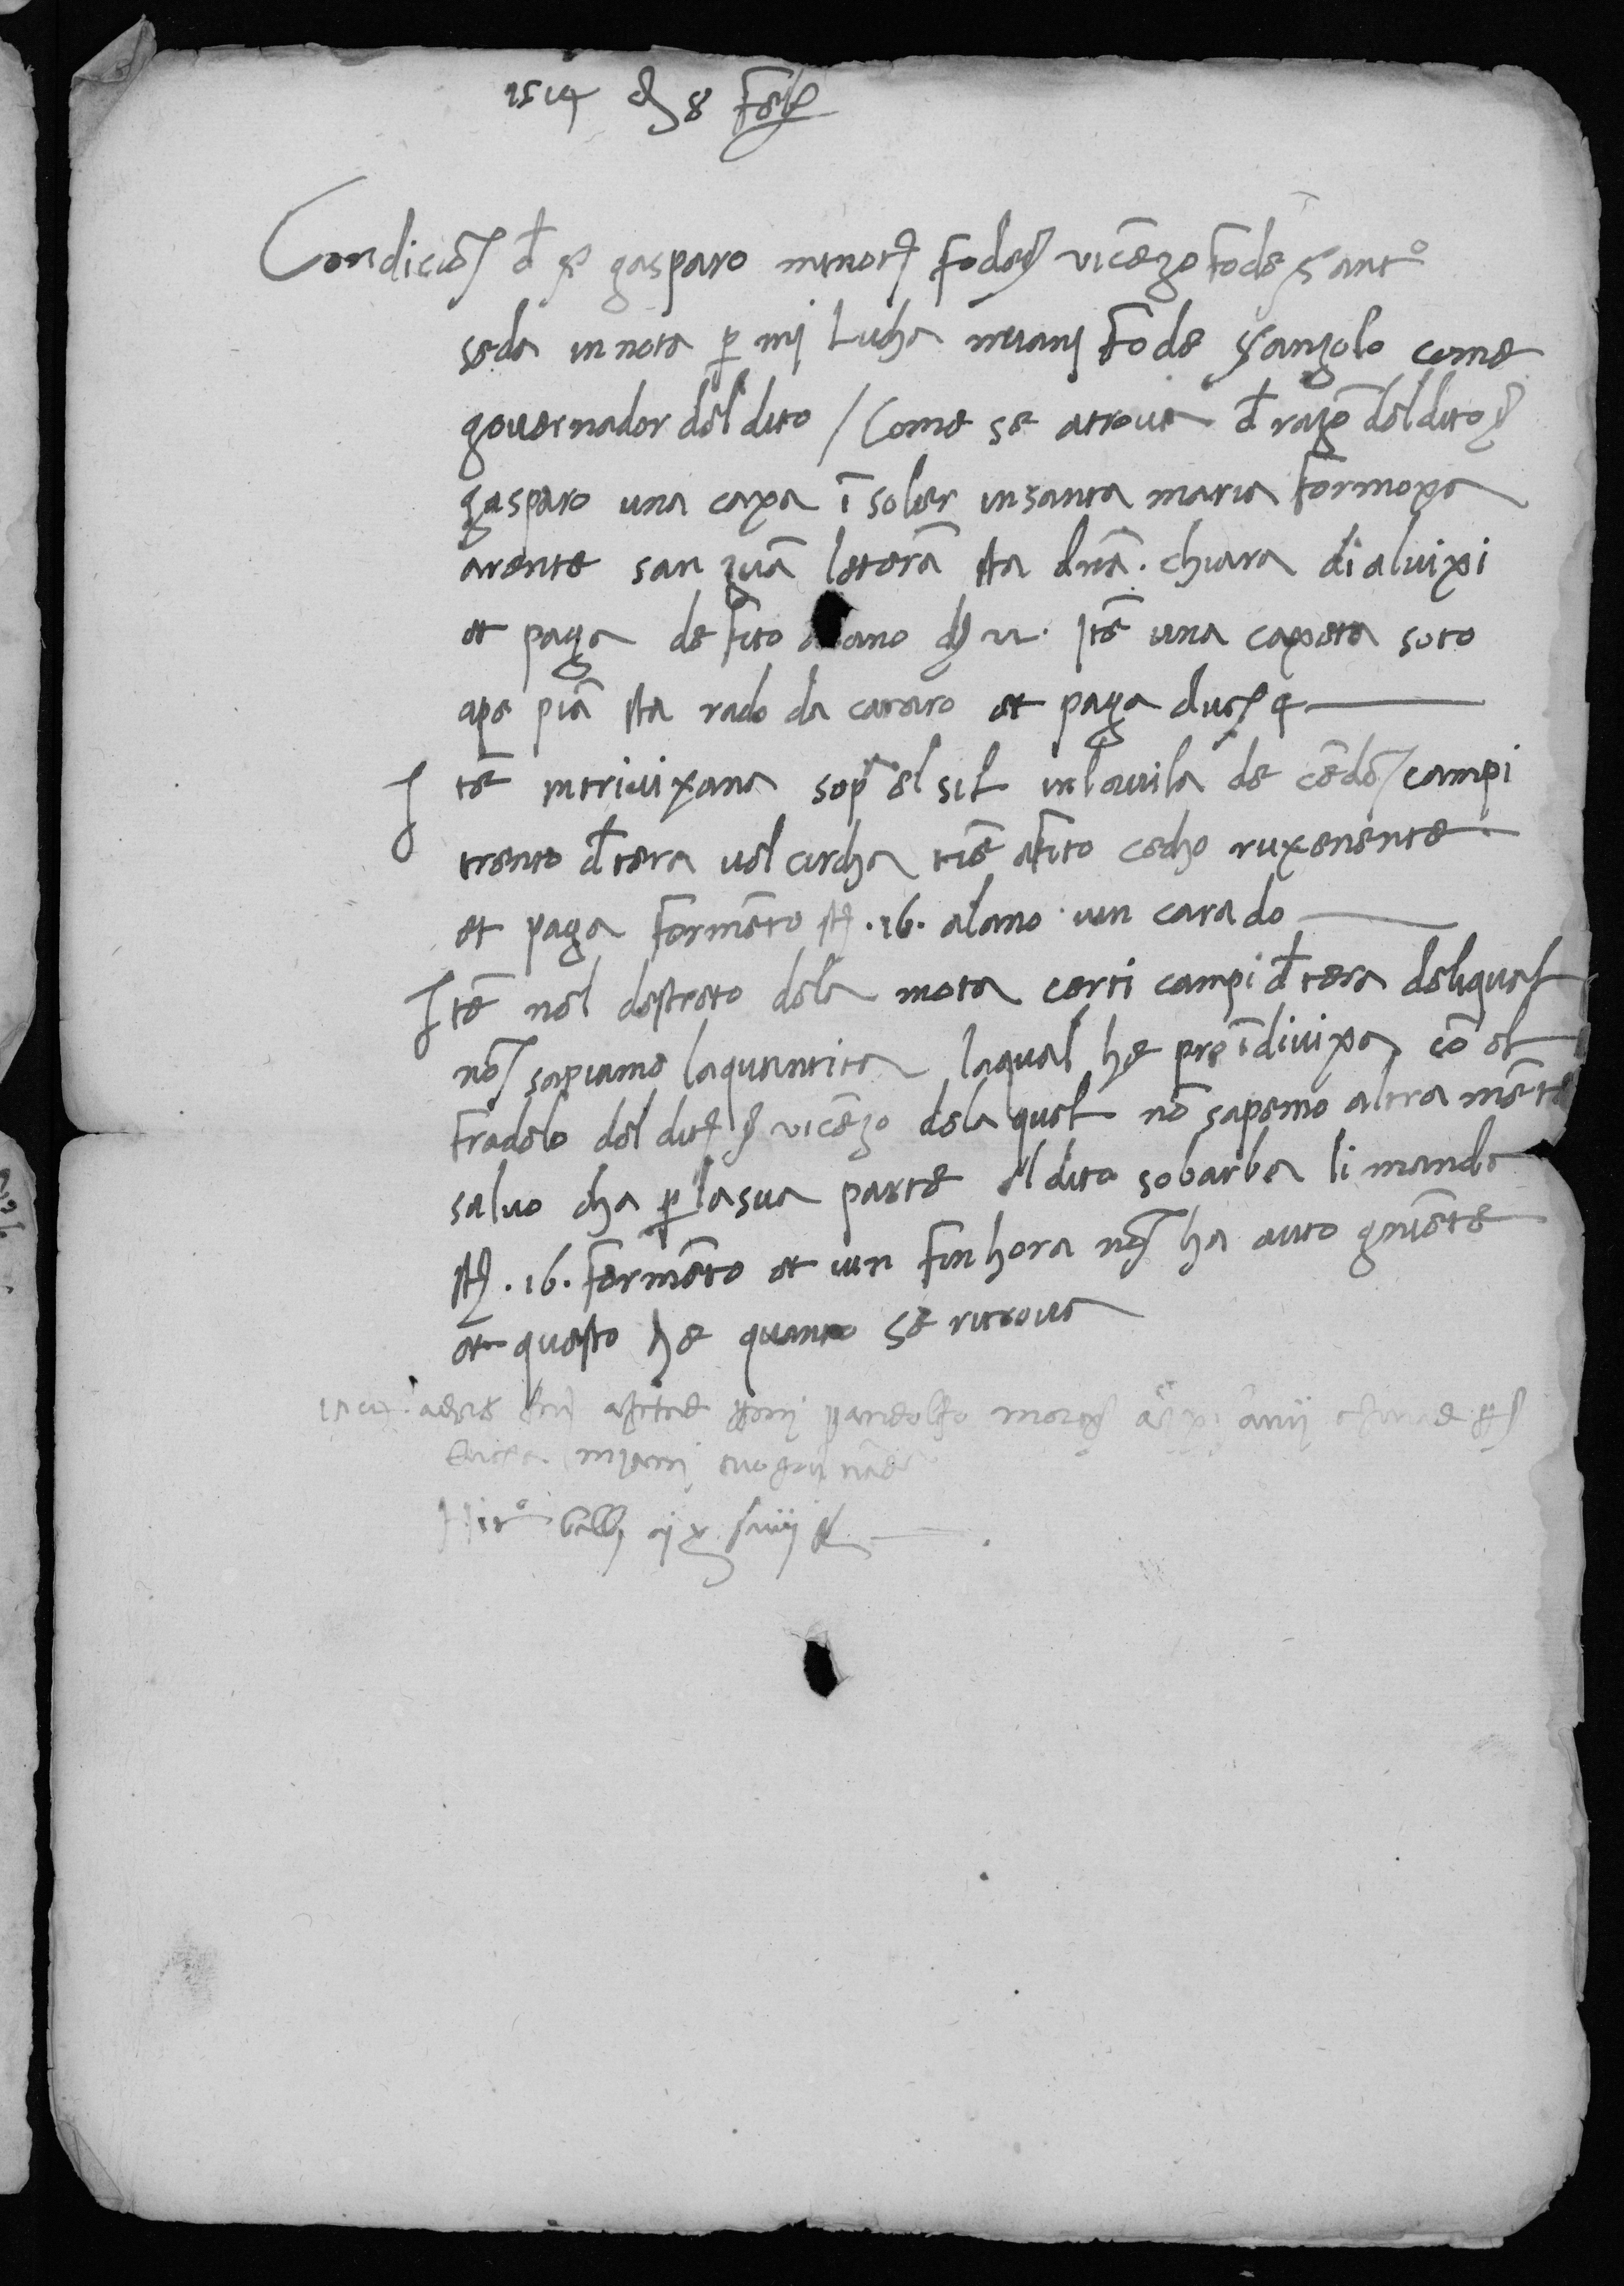 1514 di 8 feb
Condiciõ d s gasparo menor fo de s vicẽzo fo de s ant°
se da in nota p mj Lucha miani fo de s anzolo come
governador del dito / Come se atrova d razõ del dito s
gasparo una caxa ĩ soler in santa maria formoxa
arente san zuã leterã sta dnã. chiara di aluixi
et paga de fito ano d Itẽ una caxeta soto
a pe piã sta rado da cararo et paga duc 4
Itẽ in trivixana sopª el sil in la vila de cẽdõ campi
trenta d tera vel circha tiẽ afito cecho ruxenente
et paga formẽto st. 16. alano vin carado
Itẽ nel destreto dela mota certi campi d tera deliqual
nõ sapiamo la quantita la qual he pro ĩdivixa cõ el
fradelo del dit s vicẽzo dela qual nõ sapemo altra mẽte
salvo cha p la sua parte el dito so barba li manda
st. 16. formẽto et vin fin hora nõ ha auto gniẽte
et questo he quanto se ritrova
1514
miani
Hier° balbj